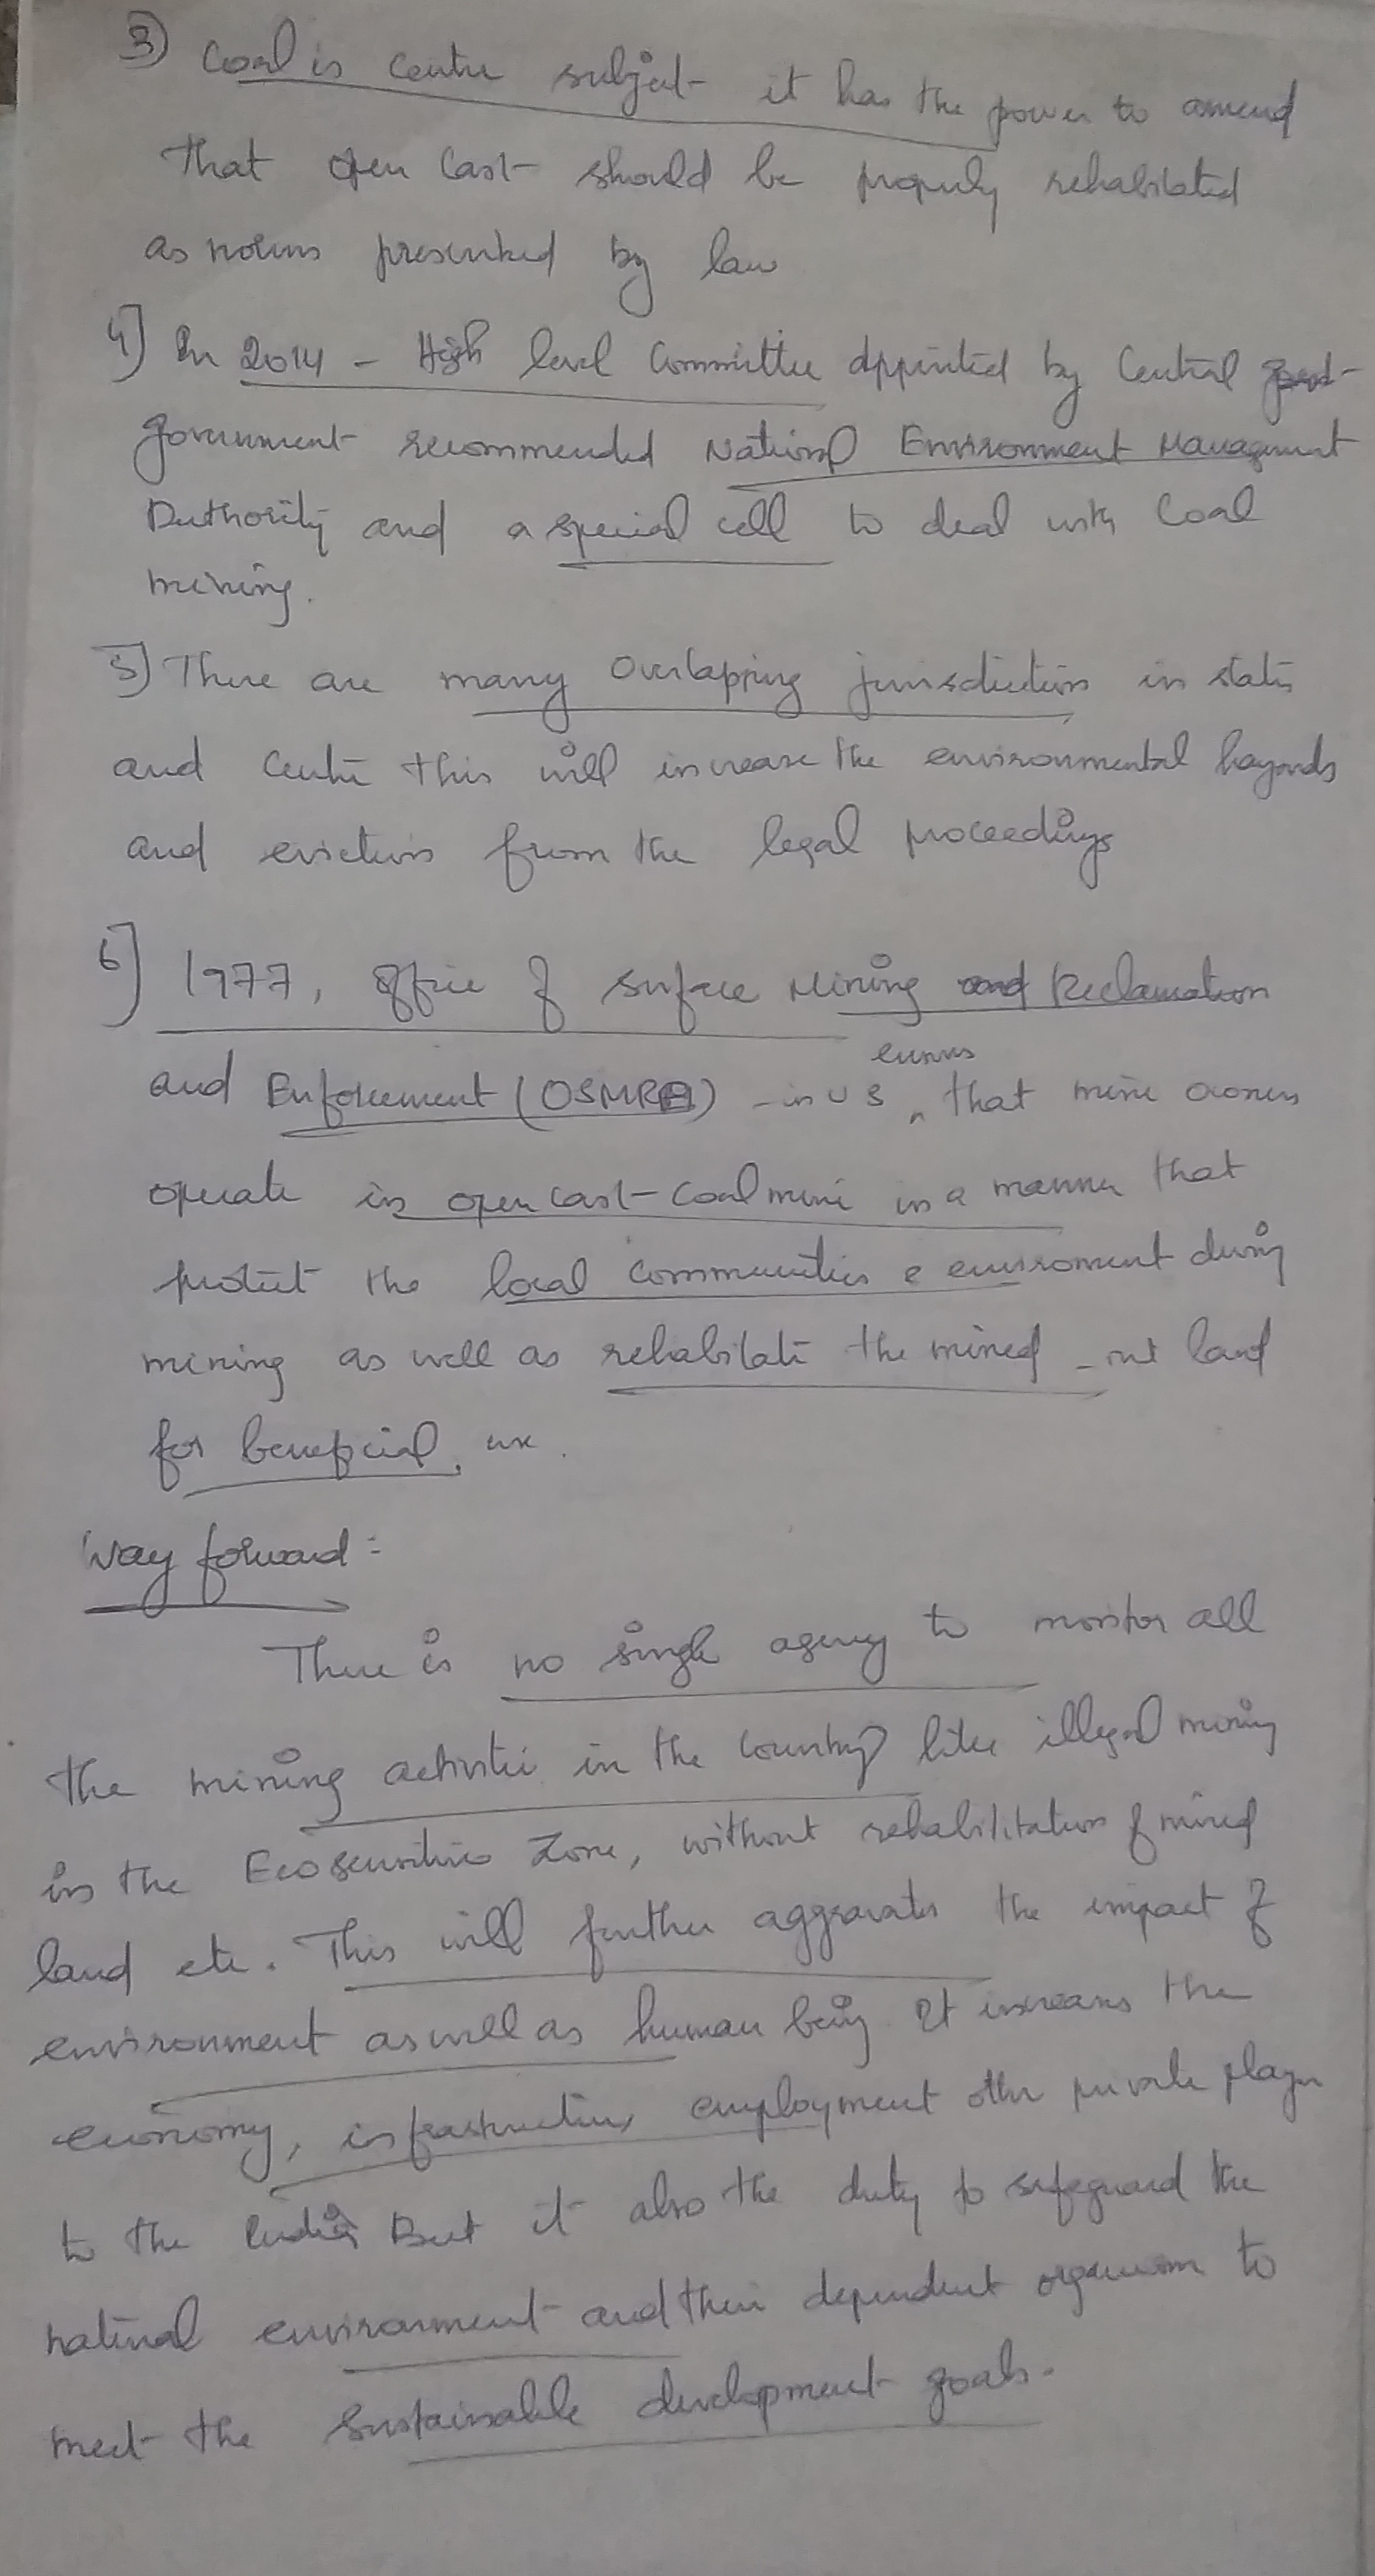 3) Coal is centre subject it has the power to amend
that open cast should be properly rehabilitated
as norms presented by law
4] In 2014 - High level Committee appointed by Central
government recommended National Environment Management
Authority and a special cell to deal with Coal
mining.
5] There are many overlapping jurisdiction in states
and centre this will increase the environmental hazards
and from the legal proceedings
6] 1977, Office of Surface Mining Reclamation
and Enforcement (OSMRE) - in US ensures that mine owners
operate in open cast coal mine in a manner that
protect the local communities & environment during
mining as well as rehabilitate the mined - out land
for beneficial use.
Way forward :-
There is no single agency to monitor all
the mining activities in the country like illegal mining
in the Ecosensitive Zone, without rehabilitation of mined
land etc. This will further aggravates the impact of
environment as well as human being. It increases the
economy, infrastructure, employment other private player
to the India But it also the duty to safeguard the
natural environment and their dependent organism to
meet the sustainable development goals.